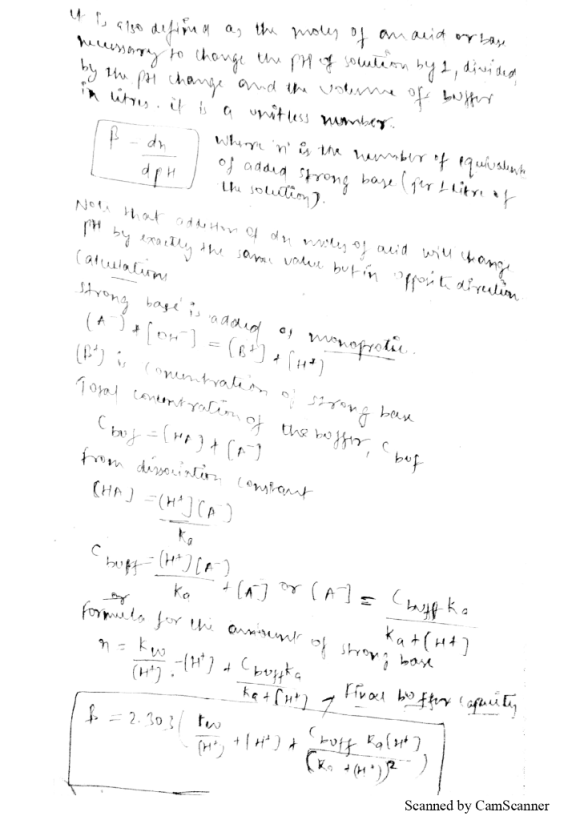 It is also defined as the moles of an acid or base
necessary to change the pH of solution by 1, divided
by the pH change and the volume of buffer
in litres. it is a unitless number.
β - dn
dpH
where 'n' is the number of equivalents
of added strong base (per 1 litre of
the solution).
Note that addition of dn moles of acid will change
pH by exactly the same value but in opposite direction
Calculations
strong base is added of monoprotic.
(A⁻) + [OH⁻] = (B⁺] + [H⁺)
(B⁺) is concentration of strong base
Total concentration of the buffer, C buf
C buf = (HA) + (A⁻)
from dissociation constant
[HA] = (H⁺] (A⁻)
Ka
C buff = (H⁺] [A⁻)
Ka
+ [A⁻] or (A⁻] = C buff Ka
Ka + (H+)
or
formula for the amount of strong base
n = Kw
(H⁺)
- (H⁺) + C buff Ka
Ka + [H⁺)
→ Final buffer capacity
β = 2.303 ( Kw
(H⁺)
+ (H⁺) + C buff Ka (H⁺]
(Ka + (H⁺))² )
Scanned by CamScanner